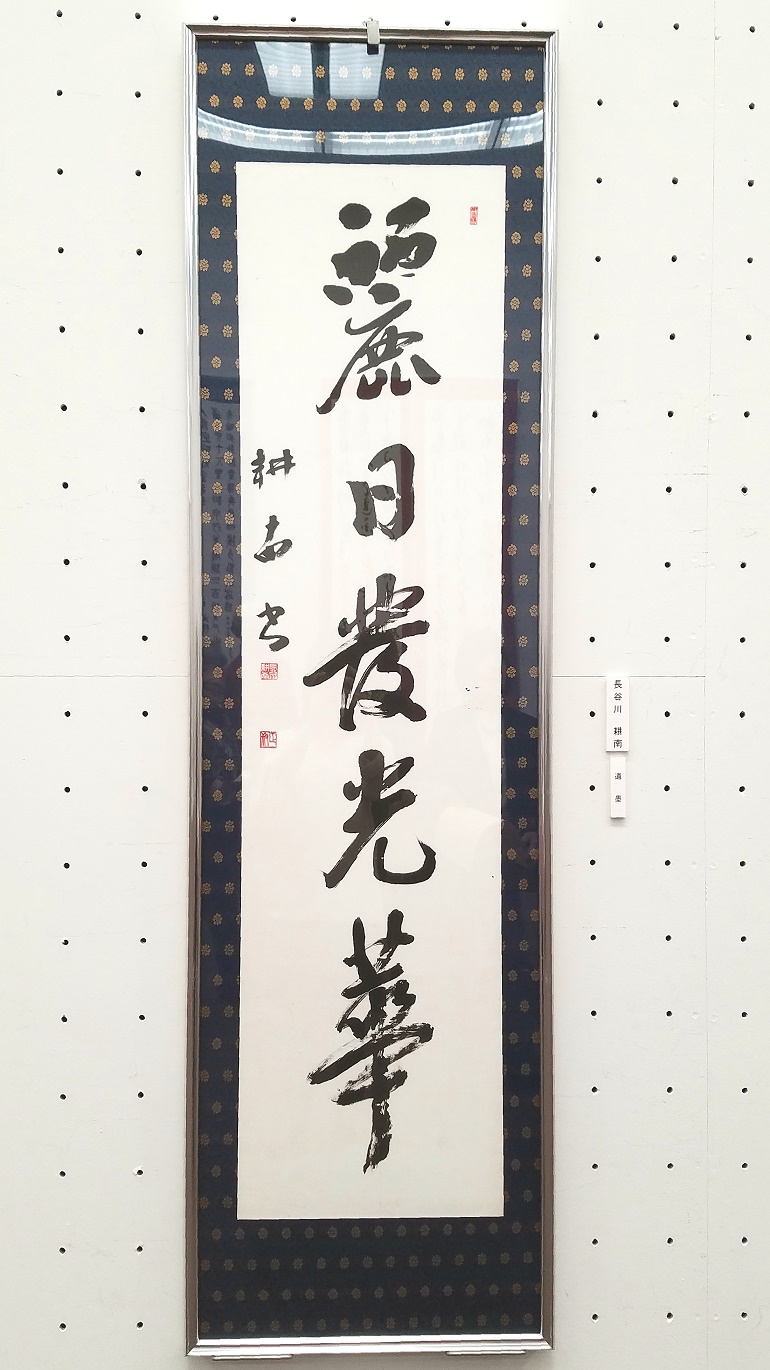 麗日發光華
耕南書
長谷川 耕南
遺墨